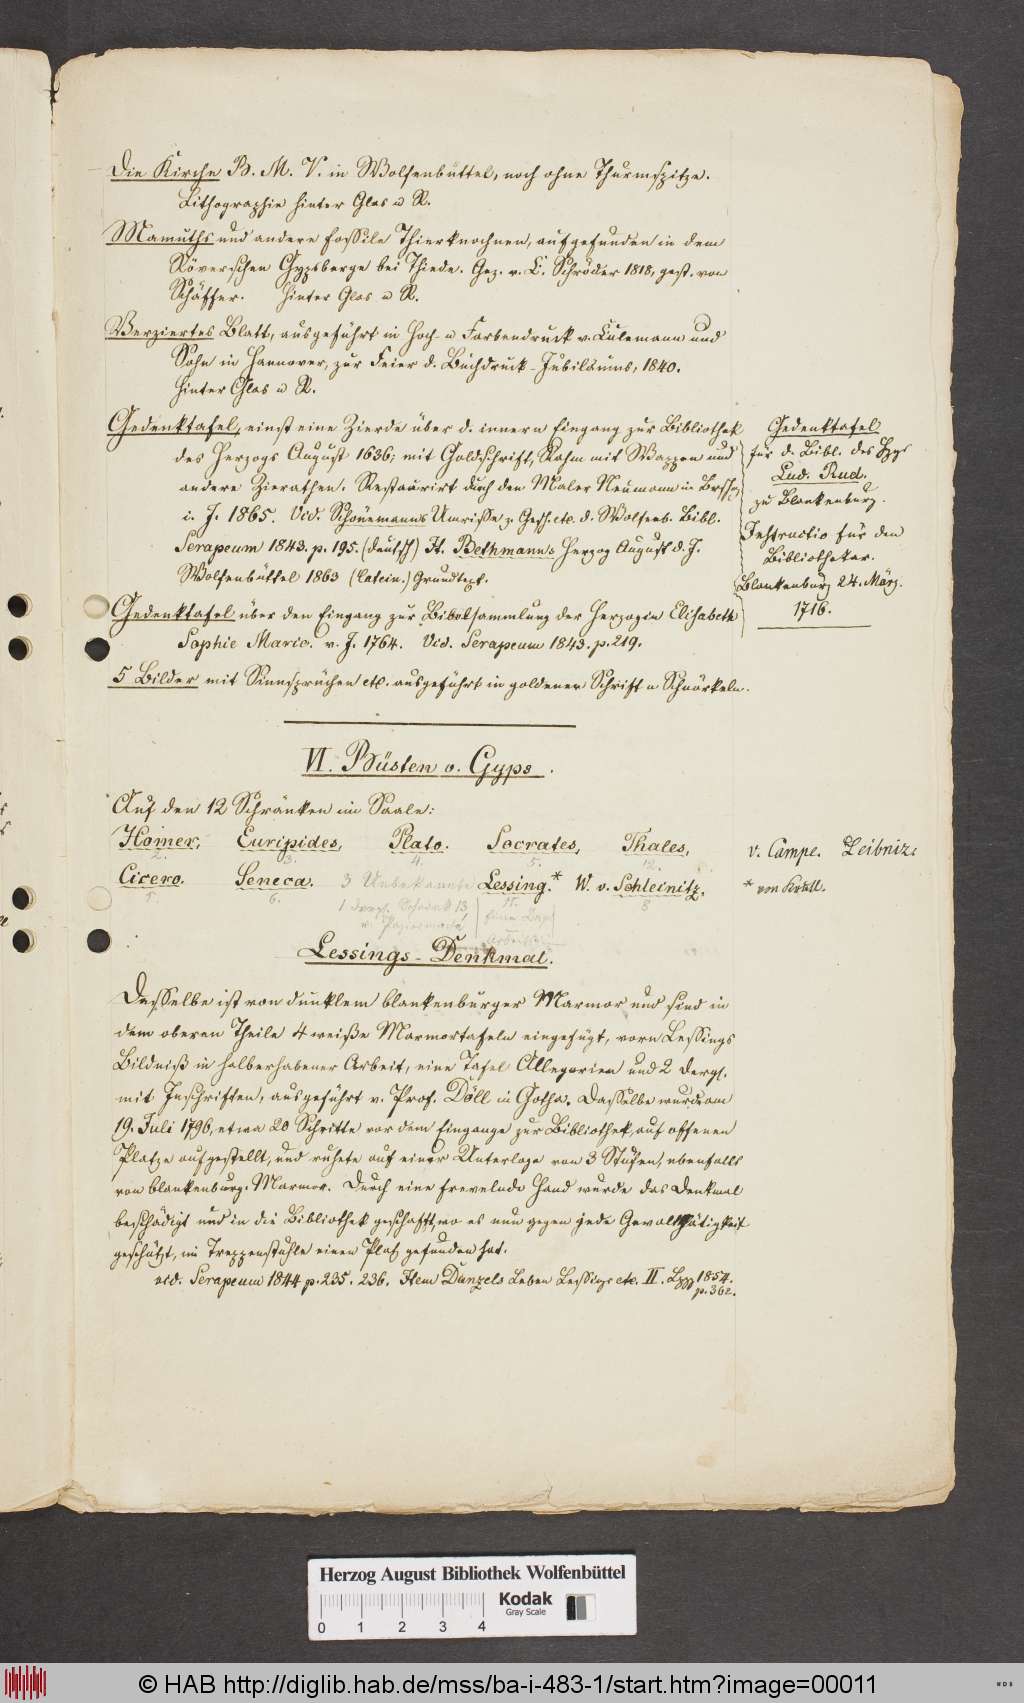 Die Kirche B. M. V. in Wolfenbüttel, noch ohne Thurmspitze.
Lithographie hinter Glas u R.
Mamuths und andere fossile Thierknochen, aufgefunden in dem
Röverschen Gypsberge bei Thiede. Gez. v. C. Schröder 1818, gest. von
Schäffer. hinter Glas u R.
Verziertes Blatt, ausgeführt in Hoch- u Farbendruck v. Culemann und
Sohn in Hannover, zur Feier d. Buchdruck-Jubiläums, 1840.
hinter Glas u R.
Gedenktafel, einst eine Zierde über d. innern Eingang zur Bibliothek
des Herzogs August 1636; mit Goldschrift, Rahm mit Wappen und
andere Zierathen. Restaurirt durch den Maler Neumann in Brschg
i. J. 1865. Vid. Schönemanns Umrisse z. Gesch. etc. d. Wolfenb. Bibl.
Serapeum 1843. p. 195. (deutsch) It. Bethmanns Herzog August d. J.
Wolfenbüttel 1863 (latein.) Grundtext.
Gedenktafel über den Eingang zur Bibelsammlung der Herzogin Elisabeth
Sophie Marie. v. J. 1764. Vid. Serapeum 1843. p. 219.
5 Bilder mit Sinnsprüchen etc. ausgeführt in goldener Schrift u Schnörkeln.
Gedenktafel
für d. Bibl. des Hzgs
Lud. Rud.
zu Blankenburg.
Instructio für den
Bibliothekar.
Blankenburg 24. März.
1716.
VI. Büsten v. Gyps.
Auf den 12 Schränken im Saale:
Homer, Euripides, Plato. Socrates, Thales, v. Campe. Leibniz.
2. 3. 4. 5. 12.
Cicero. Seneca. 3 Unbekannte Lessing.* W. v. Schleinitz. * von Krull.
5. 6. 11. 8
1 Schrank 13
Lessings-Denkmal.
Dasselbe ist von dunklem blankenburger Marmor und sind in
dem oberen Theile 4 weiße Marmortafeln eingefügt, vorn Lessings
Bildniß in halberhabener Arbeit, eine Tafel Allegorien und 2 dergl.
mit Inschriften, ausgeführt v. Prof. Döll in Gotha. Dasselbe wurde am
19. Juli 1796, etwa 20 Schritte vor dem Eingange zur Bibliothek, auf offenen
Platze aufgestellt, und ruhete auf einer Unterlage von 3 Stufen, ebenfalls
von blankenburg. Marmor. Durch eine frevelnde Hand wurde das Denkmal
beschädigt und in die Bibliothek geschafft, wo es nun gegen jede Gewaltthätigkeit
geschützt, im Treppenstuhle einen Platz gefunden hat.
vid. Serapeum 1844 p. 235. 236. Item Danzels Leben Lessings etc. II. Lpzg 1854.
p. 362.
Herzog August Bibliothek Wolfenbüttel
0 1 2 3 4
Kodak
Gray Scale
© HAB http://diglib.hab.de/mss/ba-i-483-1/start.htm?image=00011